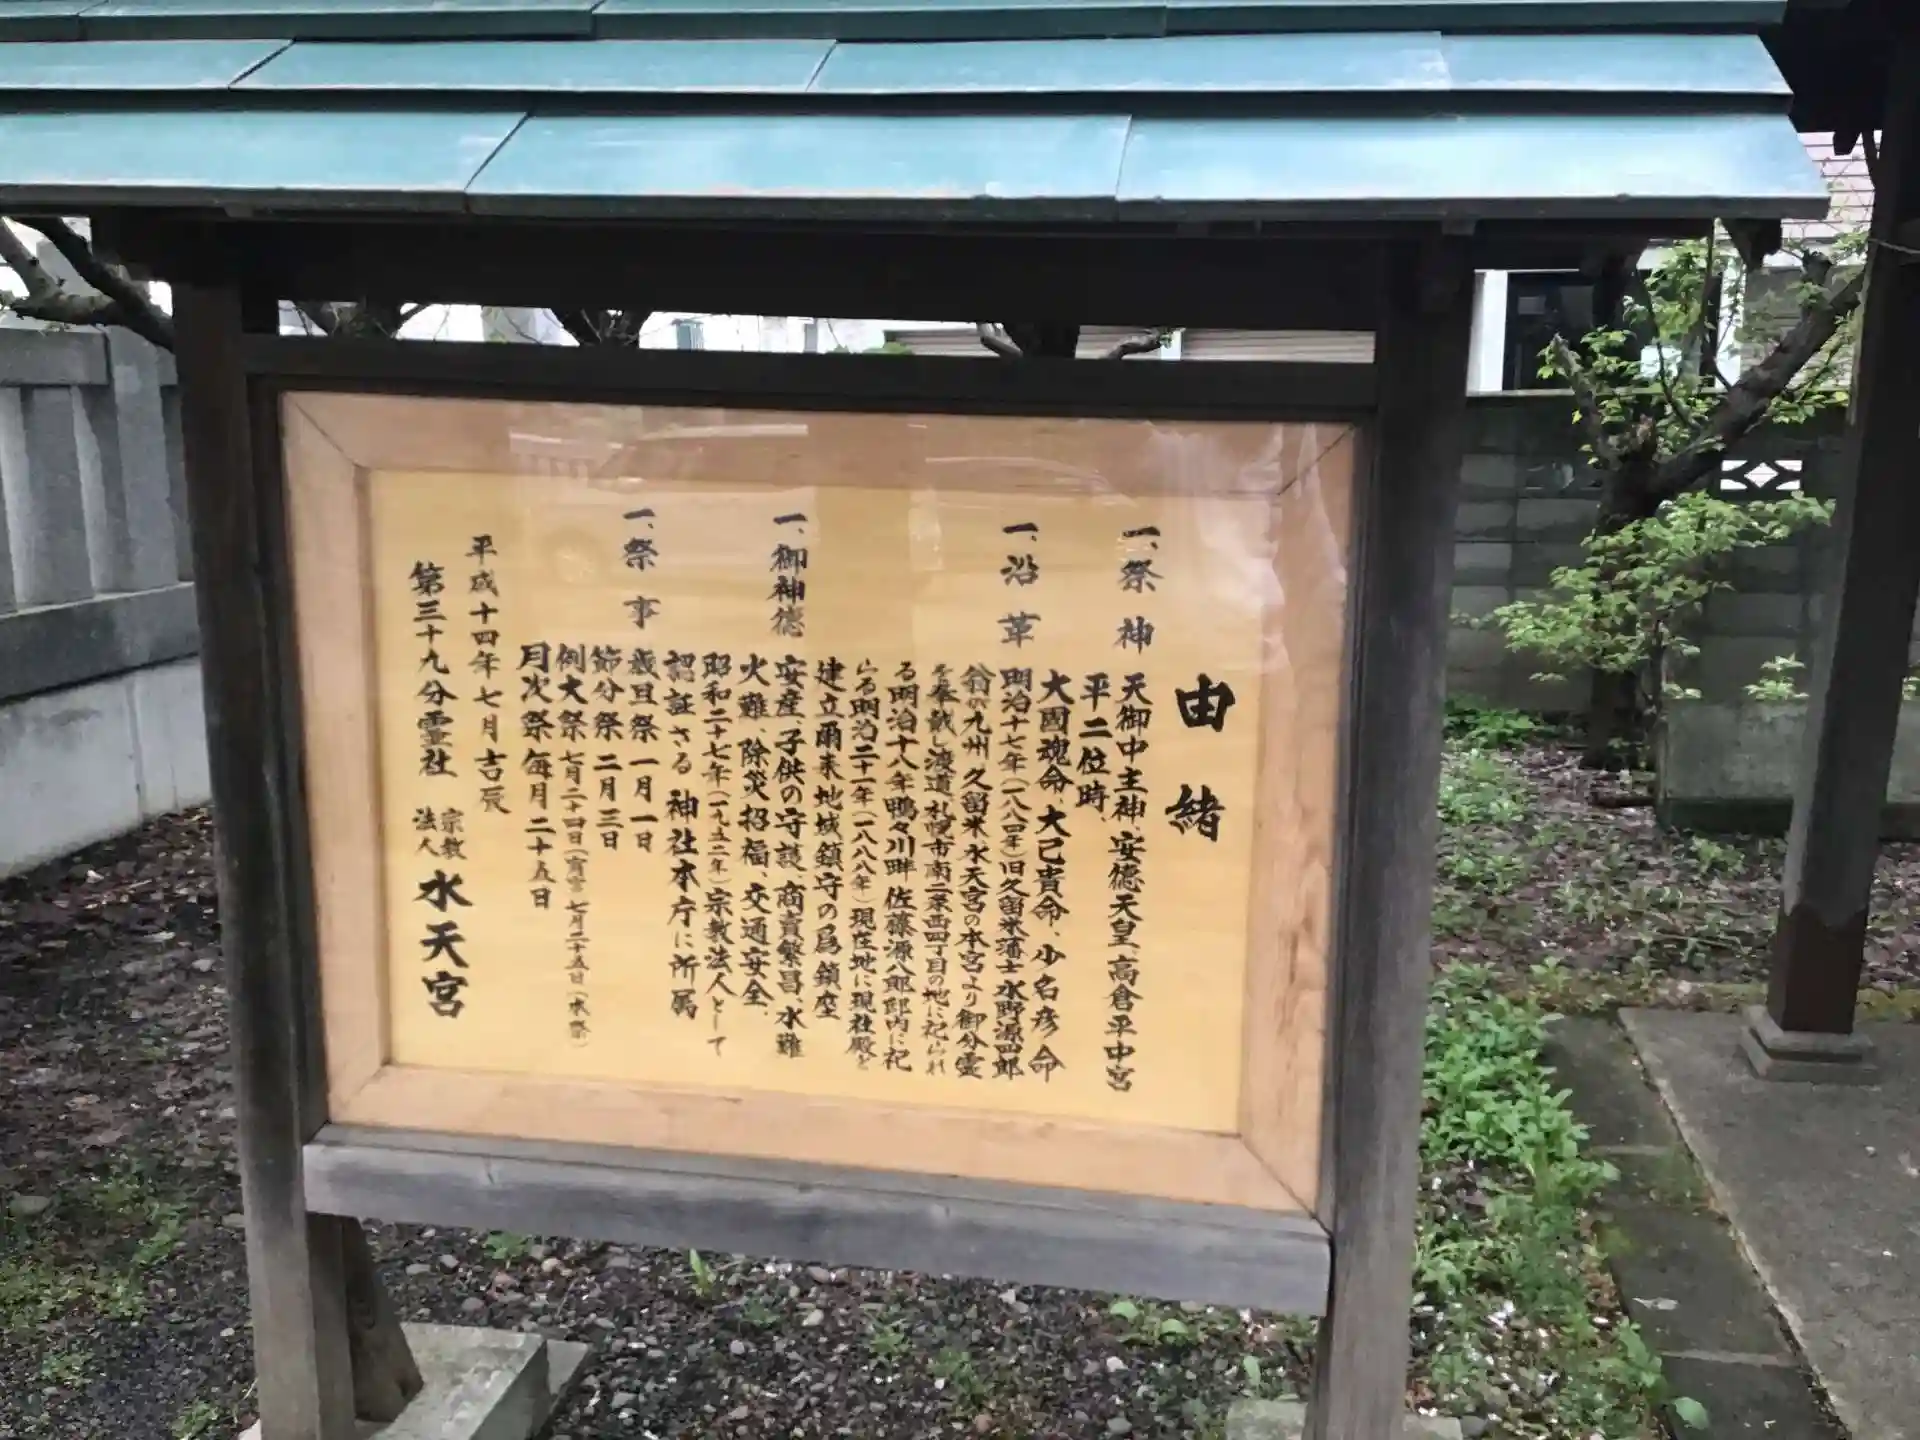 由緒
一、祭神 天御中主神、安徳天皇、高倉平中宮
平二位時、
大國魂命、大己貴命、少名彦命
一、沿革 明治十七年(一八八四年)旧久留米藩士水野源四郎
翁が九州久留米水天宮の本宮より御分霊
を奉戴し渡道札幌市南二条西四丁目の地に祀られ
る明治十八年鴨々川畔佐藤源八郎邸内に祀
らる明治二十一年(一八八八年)現在地に現社殿を
建立爾来地域鎮守の為鎮座
一、御神徳 安産、子供の守護、商賣繁昌、水難
火難、除災招福、交通安全、
昭和二十七年(一九五二年)宗教法人として
認証さる 神社本庁に所属
一、祭事 歳旦祭 一月一日
節分祭 二月三日
例大祭 七月二十四日(宵宮)七月二十五日(本祭)
月次祭 毎月二十五日
平成十四年七月吉辰
第三十九分霊社 宗教法人 水天宮